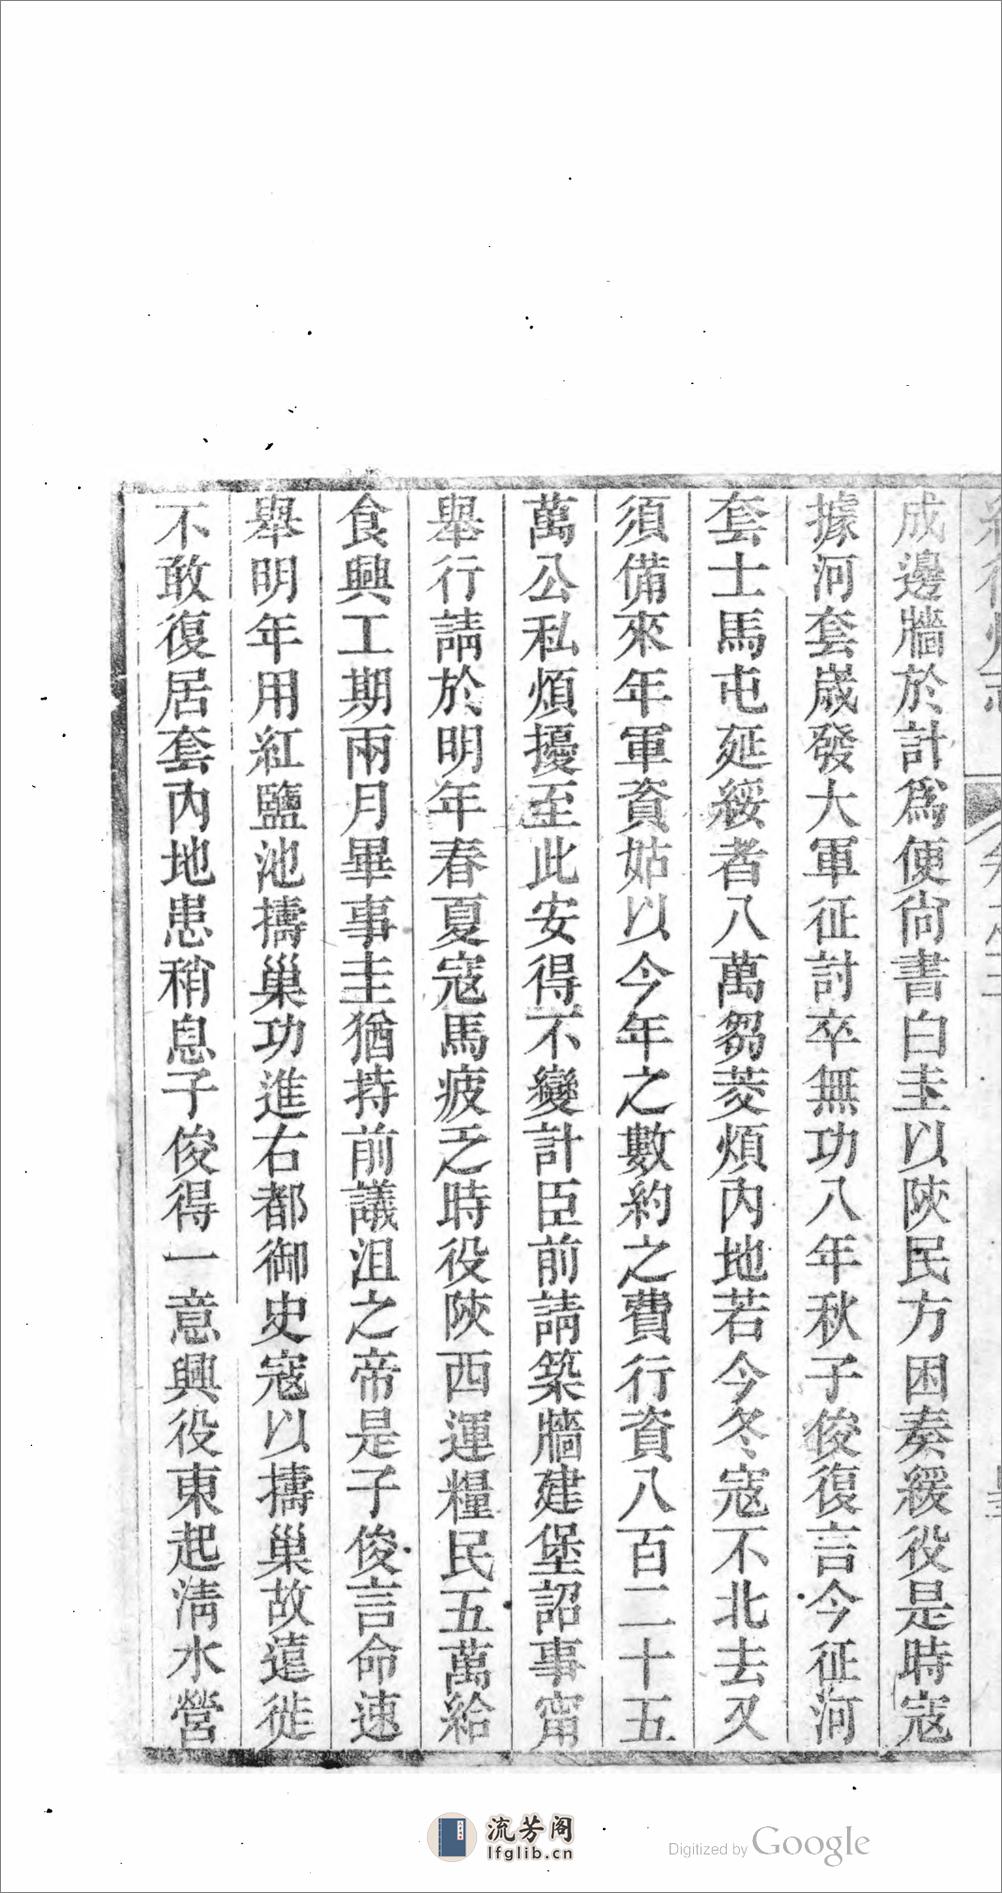 成邊牆於計爲便尙書白圭以陝民方困奏緩役是時寇
據河套歲發大軍征討卒無功八年秋子俊復言今征河
套士馬屯延綏者八萬芻茭煩內地若今冬寇不北去又
須備來年軍資姑以今年之數約之費行資八百二十五
萬公私煩擾至此安得不變計臣前請築牆建堡詔事甯
舉行請於明年春夏寇馬疲乏時役陝西運糧民五萬給
食興工期兩月畢事圭猶持前議沮之帝是子俊言命速
舉明年用紅鹽池擣巢功進右都御史寇以擣巢故遠徙
不敢復居套內地患稍息子俊得一意興役東起淸水營
流芳阁
lfglib.cn
Digitized by Google